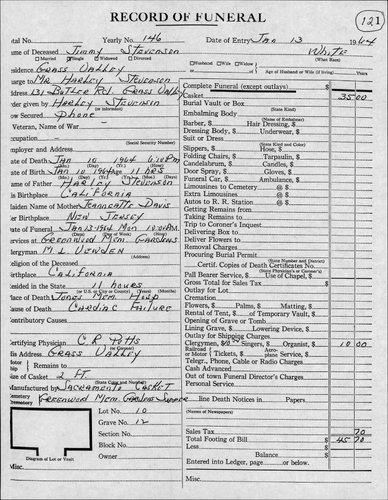 RECORD OF FUNERAL
121
otal No. Yearly No. 146 Date of Entry Jan 13 1964
ame of Deceased Jimmy Stevenson White
(What Race)
Married Single Widowed Divorced
Husband Wife Widow
or Age of Husband or Wife (if living) Years
esidence Grass Valley
harge to Mr Harley Stevenson
ddress 131 Butler Rd. Grass Valley
rder given by Harley Stevenson
or informant)
ow Secured Phone
Veteran, Name of War
ccupation
(Social Security Number)
mployer and Address
ate of Death Jan 10 1964 6:10 PM
ate of Birth Jan 10 1964 Age 11 hrs
ame of Father Harley Stevenson
is Birthplace California
aiden Name of Mother Jennette Davis
er Birthplace New Jersey
ate of Funeral Jan 13-1964 Mon
ervices at Greenwood Mem. Gardens
lergyman M L
eligion of the Deceased
irthplace California
esided in the State 11 hours
(or U.S. or City or County) (Years) (Months)
lace of Death Jones Mem. Hosp
ause of Death Cardiac Failure
ontributory Causes
ertifying Physician C R Potts
is Address Grass Valley
Remains to
ize of Casket 2 FT.
(State Color and Number)
anufactured by Sacramento Casket
emetery
rematory Greenwood Mem. Gardens
Lot No. 10
Grave No. 12
Section No.
Block No.
Owner
Diagram of Lot or Vault
Misc.
Complete Funeral (except outlays) $
Casket 35 00
Burial Vault or Box
(State Kind)
Embalming Body
(Name of Embalmer)
Barber, $ Hair Dressing, $
Dressing Body, $ Underwear, $
Suit or Dress
(State Kind and Color)
Slippers, $ Hose, $
Folding Chairs, $ Tarpaulin, $
Candelabrum, $ Candles, $
Door Spray, $ Gloves, $
Funeral Car, $ Ambulance, $
Limousines to Cemetery @ $
Extra Limousines @ $
Autos to R. R. Station @ $
Getting Remains from
Taking Remains to
Trip to Coroner's Inquest
Delivering Box to
Deliver Flowers to
Removal Charges
Procuring Burial Permit
(State Number and District)
Certif. Copies of Death Certificates No.
(State Physician's or Coroner's)
Pall Bearer Service $ Use of Chapel, $
Gross Total for Sales Tax $
Outlay for Lot
Cremation
Flowers, $ Palms, $ Matting, $
Rental of Tent, $ of Temporary Vault, $
Opening of Grave or Tomb
Lining Grave, $ Lowering Device, $
Outlay for Shipping Charges
Clergymen, Singers, $ Organist, $ 10 00
Railroad Tickets, $ Aero- service, $
or Motor plane
Telegr., Phone, Cable or Radio Charges
Cash Advanced
Out of town Funeral Director's Charges
Personal Service
line Death Notices in Papers
(Names of Newspapers)
Sales Tax 70
Total Footing of Bill $ 45 70
Less $
Balance $
Entered into Ledger, page or below.
Misc.